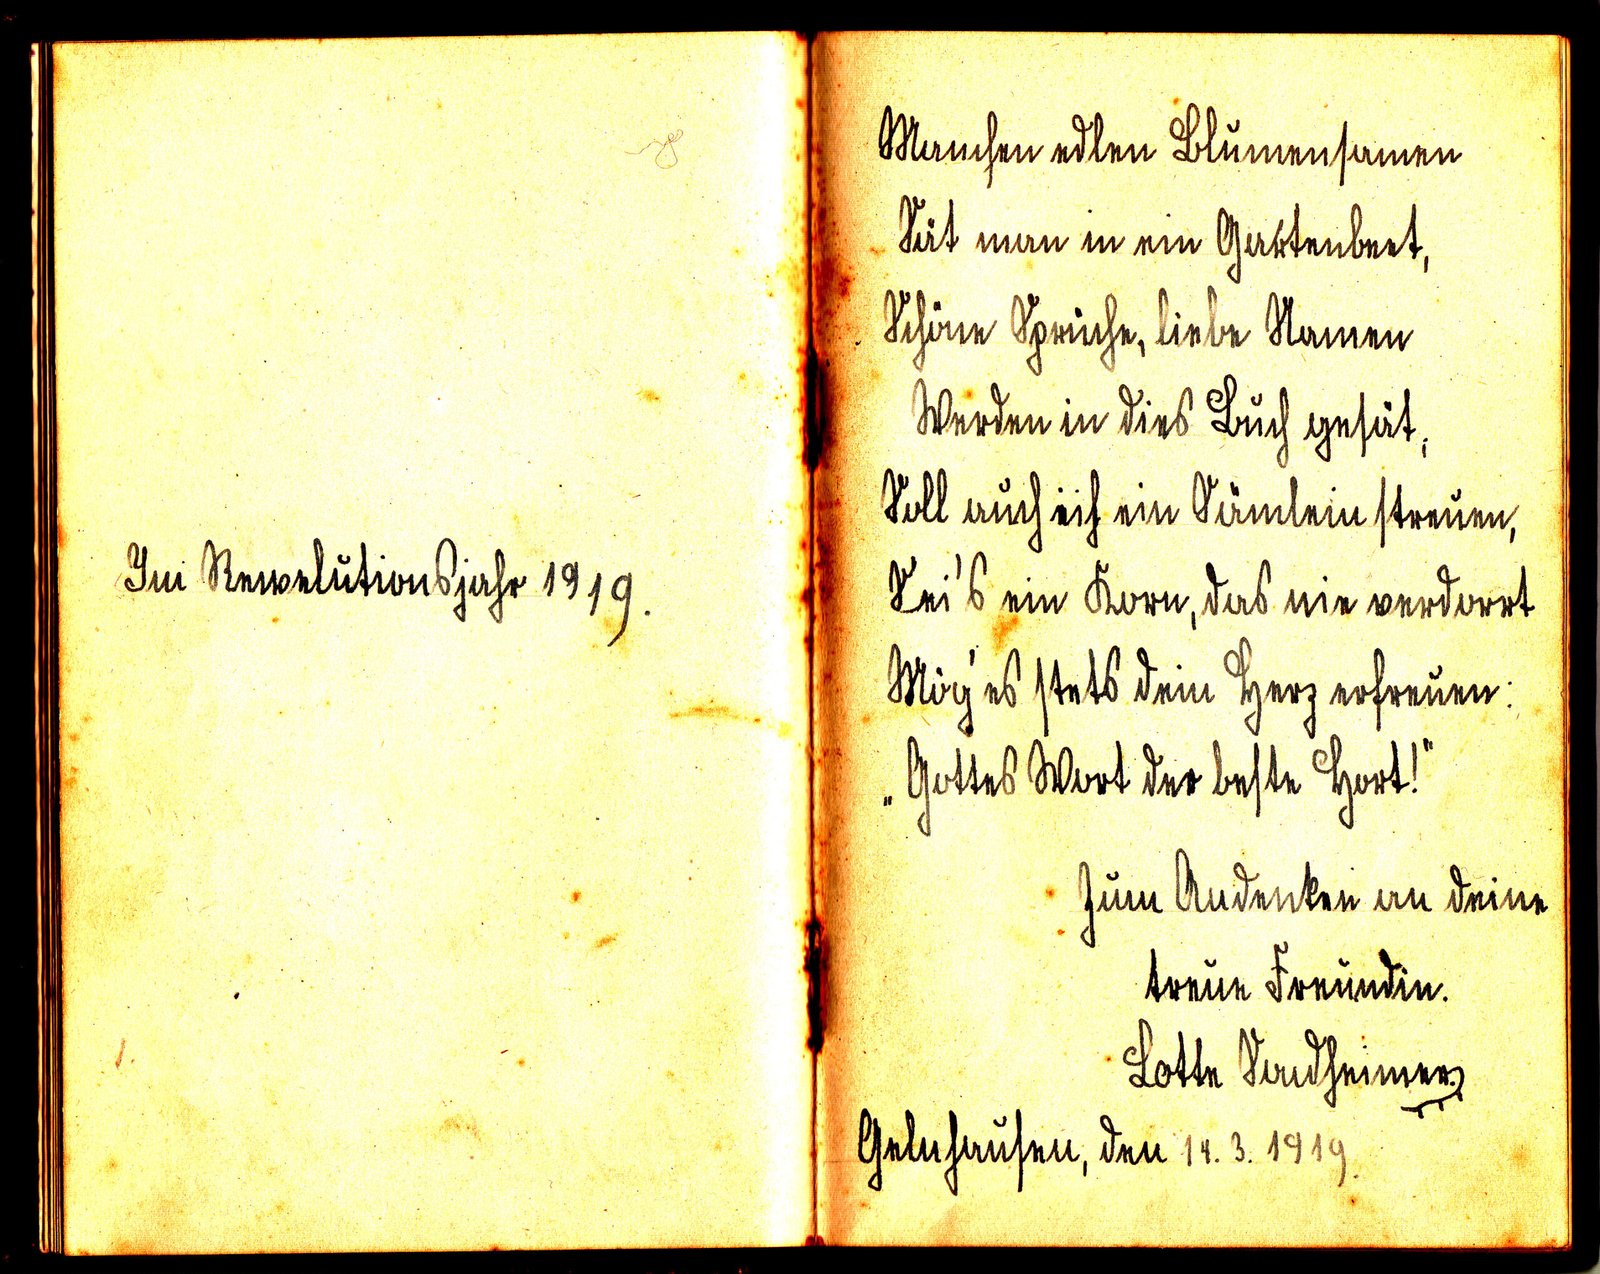 Im Rewelutionsjahr 1919.
Manchen edlen Blumensamen
Sät man in ein Gartenbeet,
Schöne Sprüche, liebe Namen
Werden in dies Buch gesät;
Soll auch ich ein Sämlein streuen,
Sei's ein Korn, das nie verdorrt
Mög' es stets dein Herz erfreuen:
„Gottes Wort der beste Hort!"
Zum Andenken an deine
treue Freundin.
Lotte Sondheimer
Gelnhausen, den 14. 3. 1919.